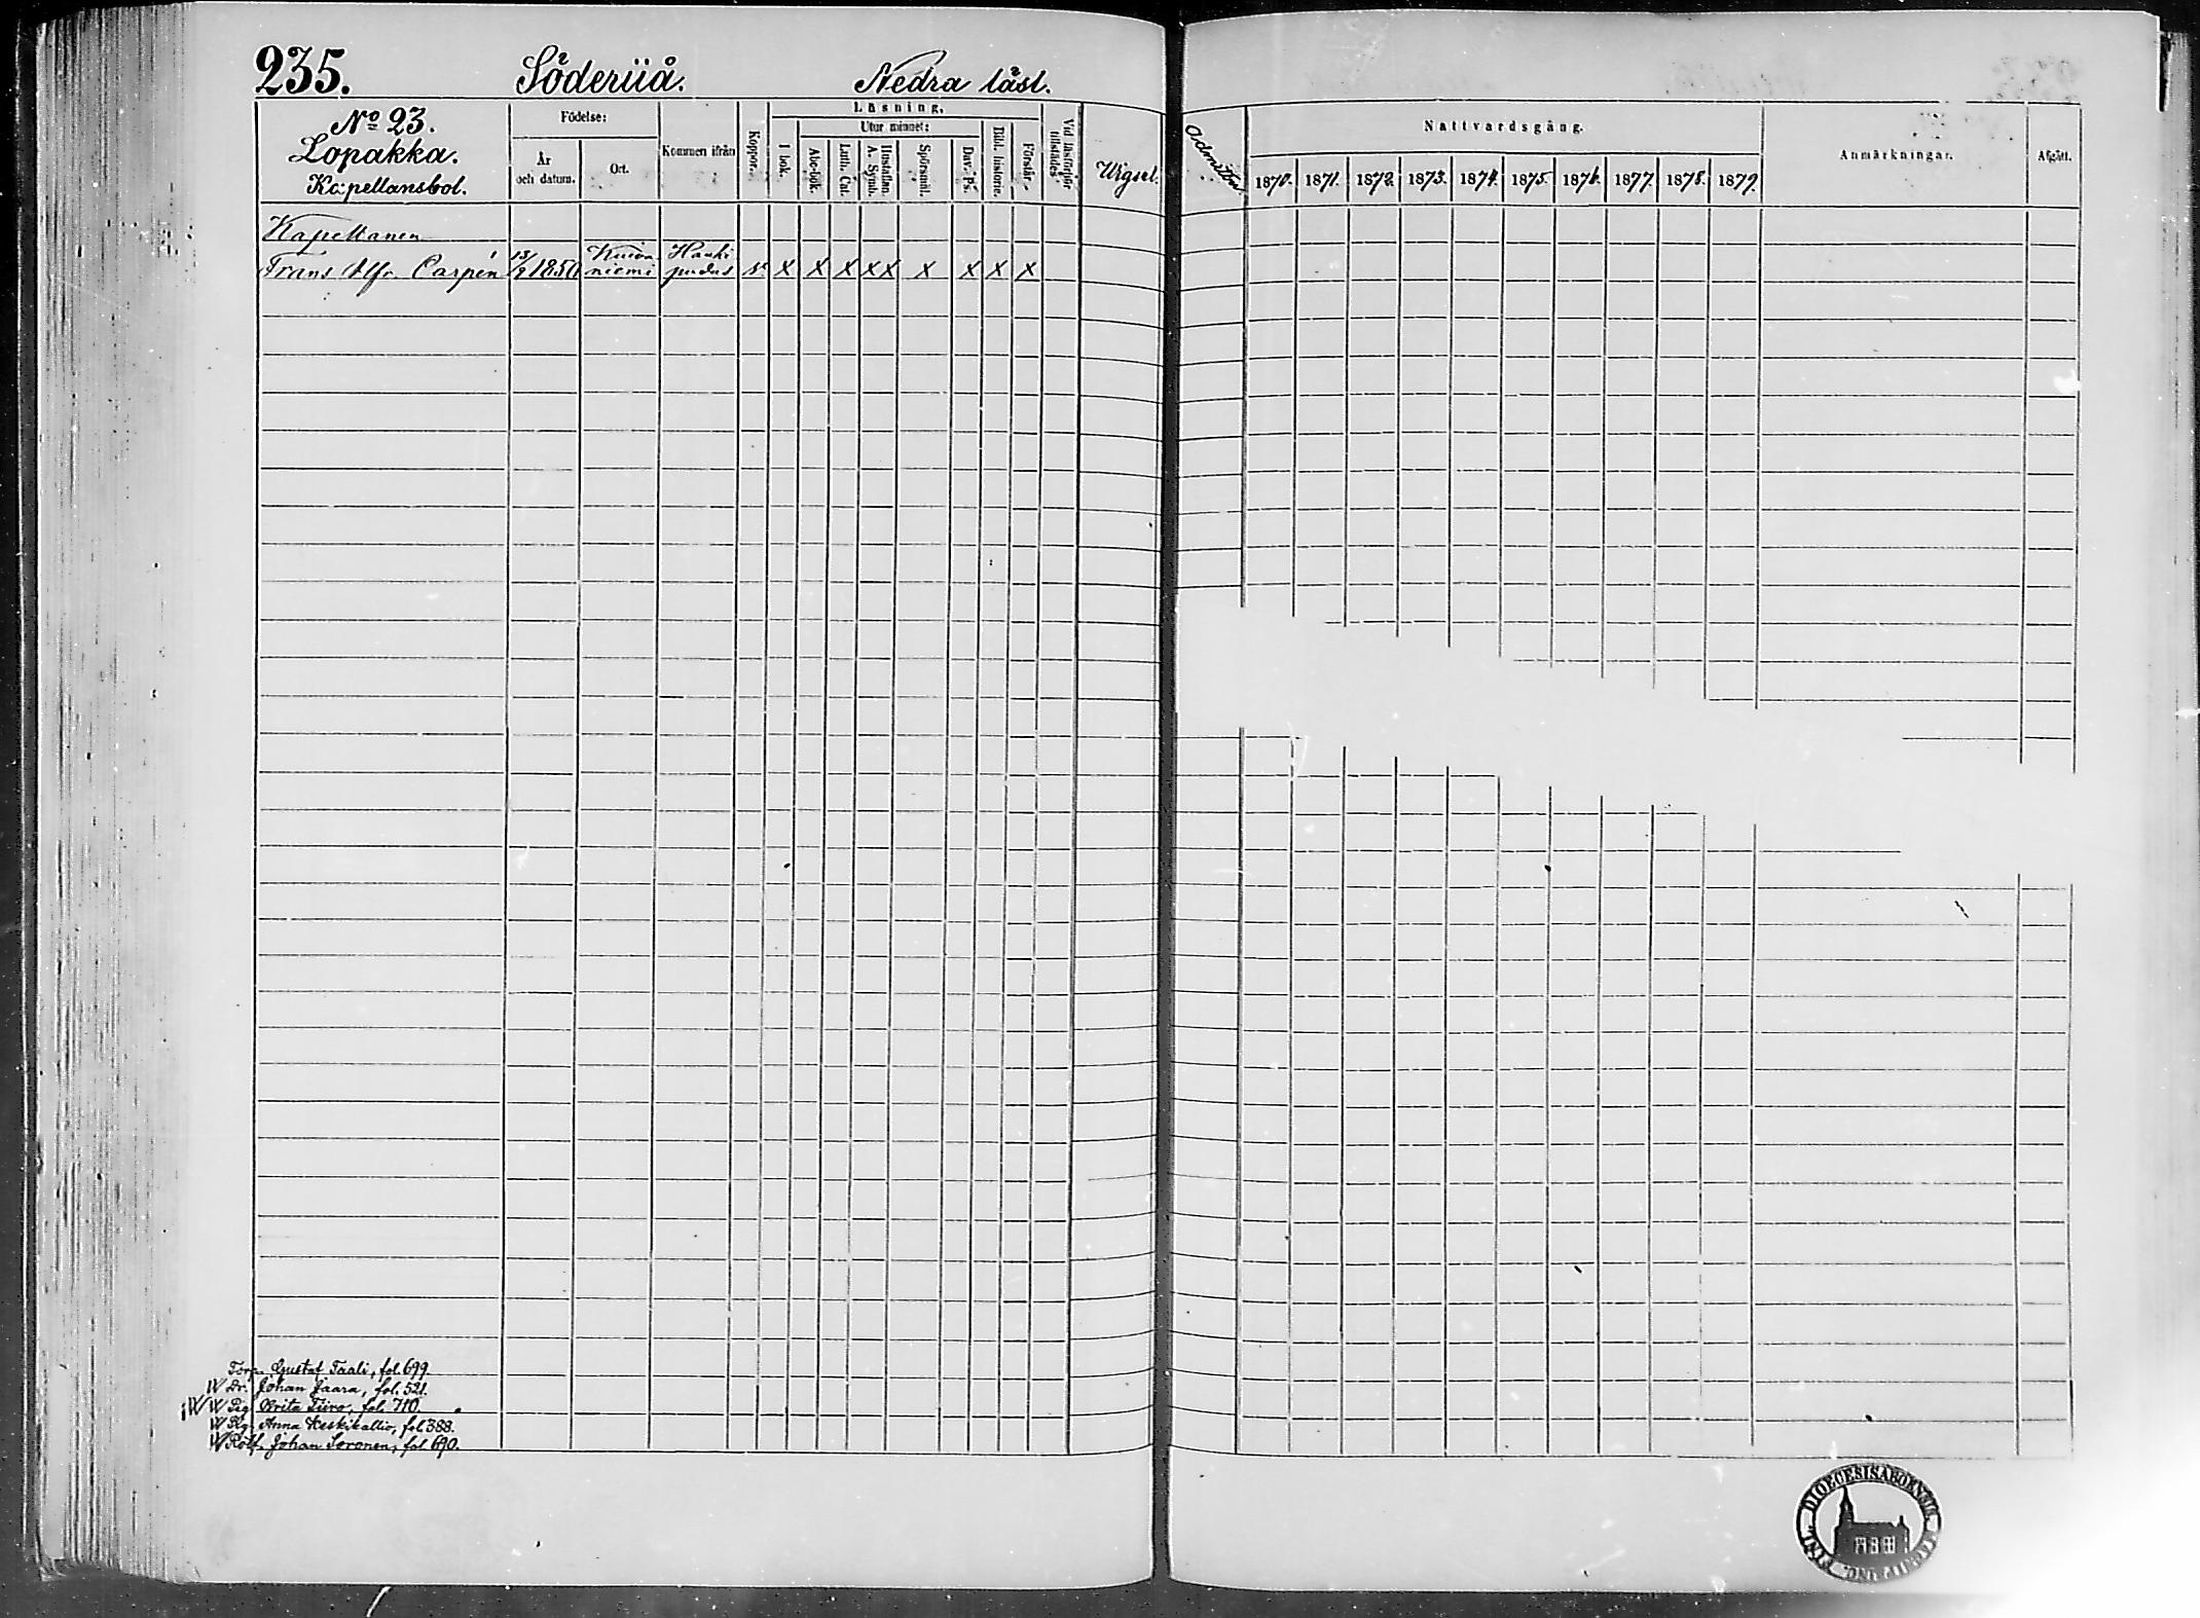 235. Söderiiå. Nedra läsl.
No 23.
Lopakka.
Kapellansbol.
Födelse:
År och datum.
Ort.
Kommen ifrån
Koppor.
Läsning.
I bok.
Utur minnet:
Abc-bok.
Luth. Cat.
Hustaflan. A. Symb.
Spörsmål.
Dav. Ps.
Bibl. historie.
Förstår
Vid läsförhör tillstädes
admitter.
Nattvardsgång.
1870. 1871. 1872. 1873. 1874. 1875. 1876. 1877. 1878. 1879.
Anmärkningar.
Afgått.
Kapellanen
Frans Alfr. Carpén 1850 Kuivaniemi Haukipudas x x x x x x x x x
Torp. Gustaf Taali, fol. 699
Dr. Johan Jaara, fol. 521.
Pig. Brita Tiiro, fol. 710.
Pig. Anna Keskikallio, fol. 388.
Rotf. Johan Soronen, fol 690.
DIOECESIS ABOENSIS